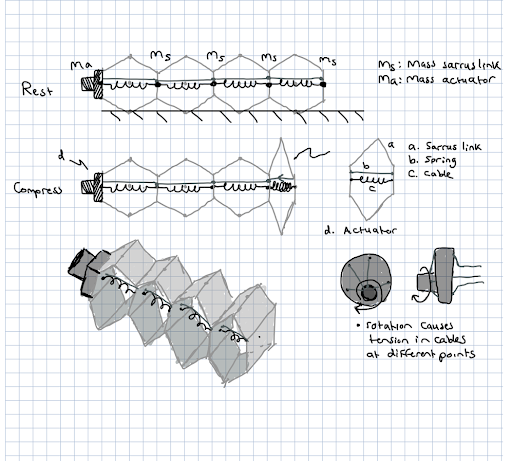 Ma
Ms
Ms
Ms
Ms
Ms: Mass sarrus link
Ma: Mass actuator
Rest
d
a
a. Sarrus link
b
b. Spring
c
c. Cable
Compress
d. Actuator
• rotation causes
tension in cables
at different points